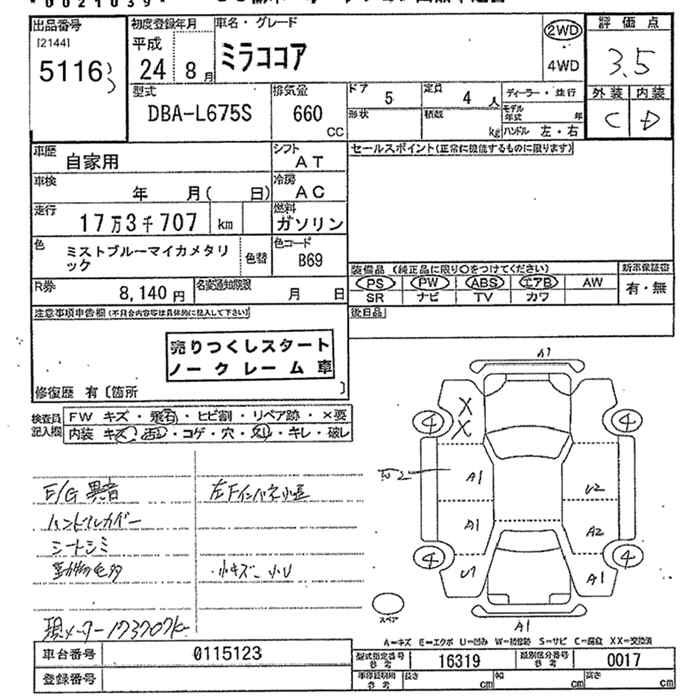 0021039
出品番号
[2144]
5116
初度登録年月
平成
24 8月
車名・グレード
ミラココア
2WD
4WD
評価点
3.5
外装 内装
C D
型式
DBA-L675S
排気量
660
CC
ドア
5
定員
4 人
形状
積載
kg
ディーラー・並行
モデル
年式
年
ハンドル 左・右
車歴
自家用
シフト
AT
セールスポイント(正常に機能するものに限ります)
車検
年 月( 日)
冷房
AC
走行
17万3千707 km
燃料
ガソリン
色
ミストブルーマイカメタリ
ック
色替
色コード
B69
装備品 (純正品に限り○をつけてください)
PS PW ABS エアB AW
SR ナビ TV カワ
新車保証書
有・無
R券
8,140 円
名変通知期限
月 日
注意事項申告欄(不具合内容等は具体的に記入して下さい)
後日品
売りつくしスタート
ノークレーム車
修復歴 有〔箇所 〕
検査員
記入欄
FW キズ・飛石・ヒビ割・リペア跡・×要
内装 キズ・汚レ・コゲ・穴・スレ・キレ・破レ
E/G異音
左Fインパネ小歪
ハンドルカバー
シートシミ
動物毛多
小キズ、小U
現メーター173707k
A1
X
X
4
4
A1
U2
A1
A2
4
4
U1
A1
スペア
A1
A=キズ E=エクボ U=凹み W=補修跡 S=サビ C=腐食 XX=交換済
車台番号
0115123
型式指定番号
参考
16319
類別区分番号
参考
0017
登録番号
車庫証明用
参考
長さ cm
幅 cm
高さ cm